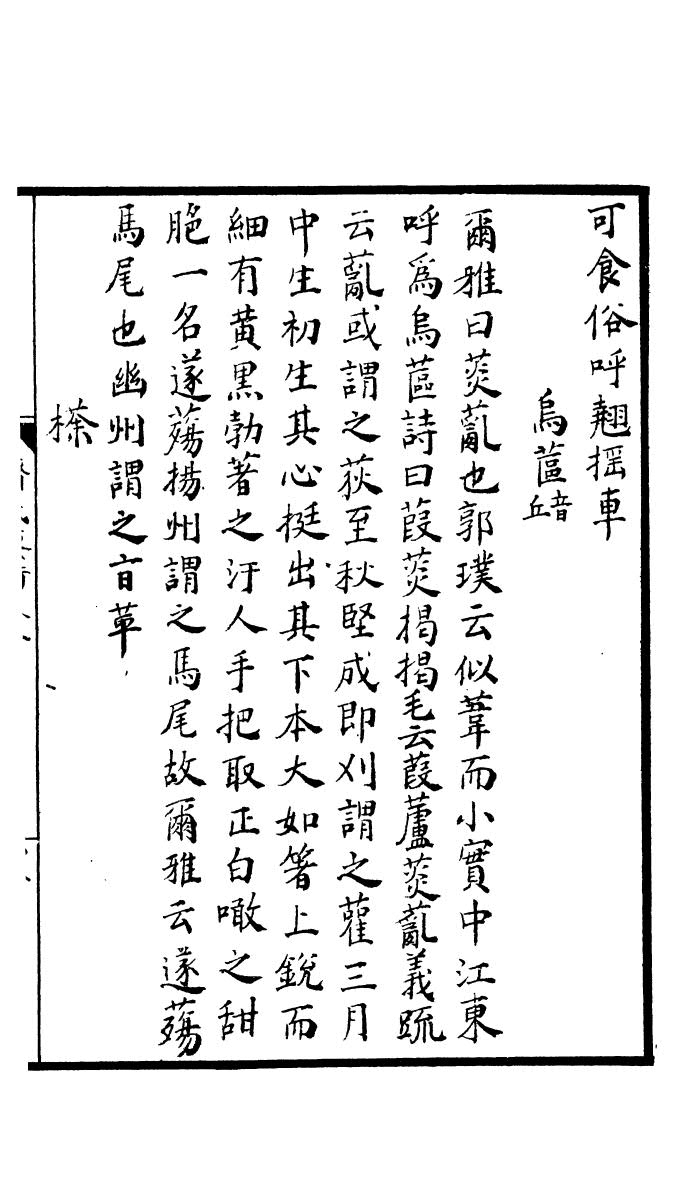 可食俗呼翹揺車
烏蓲音丘
爾雅曰菼薍也郭璞云似葦而小實中江東
呼爲烏蓲詩曰葭菼揭揭毛云葭蘆菼薍義䟽
云薍或謂之荻至秋堅成即刈謂之雚三月
中生初生其心挺出其下本大如箸上銳而
細有黄黒勃著之汙人手把取正白噉之甜
脆一名蓫薚揚州謂之馬尾故爾雅云蓫薚
馬尾也幽州謂之旨苹
㯂